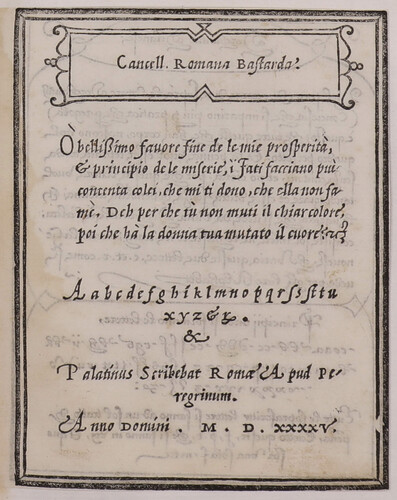 Cancell. Romana Bastarda.
Ò bellissimo favore fine de le mie prosperità,
& principio de le miserie, i Fati facciano più
contenta colei, che mi ti dono, che ella non fa
mè. Deh per che tù non muti il chiar colore,
poi che hà la donna tua mutato il cuore.
A a b c d e f g h i k l m n o p q r s s s t u
x y z & ꝝ.
&
Palatinus Scribebat Romæ A pud Pe-
regrinum.
Anno Domini . M. D. XXXXV.